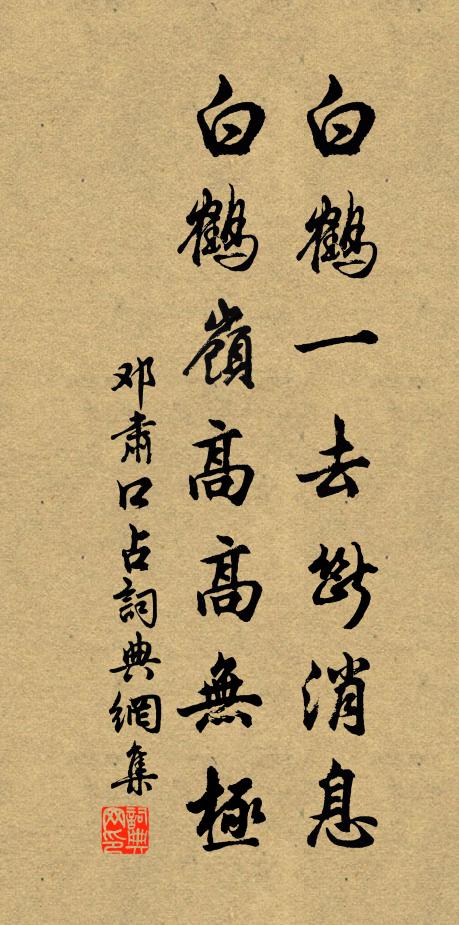 白鶴一去斷消息
白鶴嶺高高無極
邓肅口占詞典網集
詞典
网印